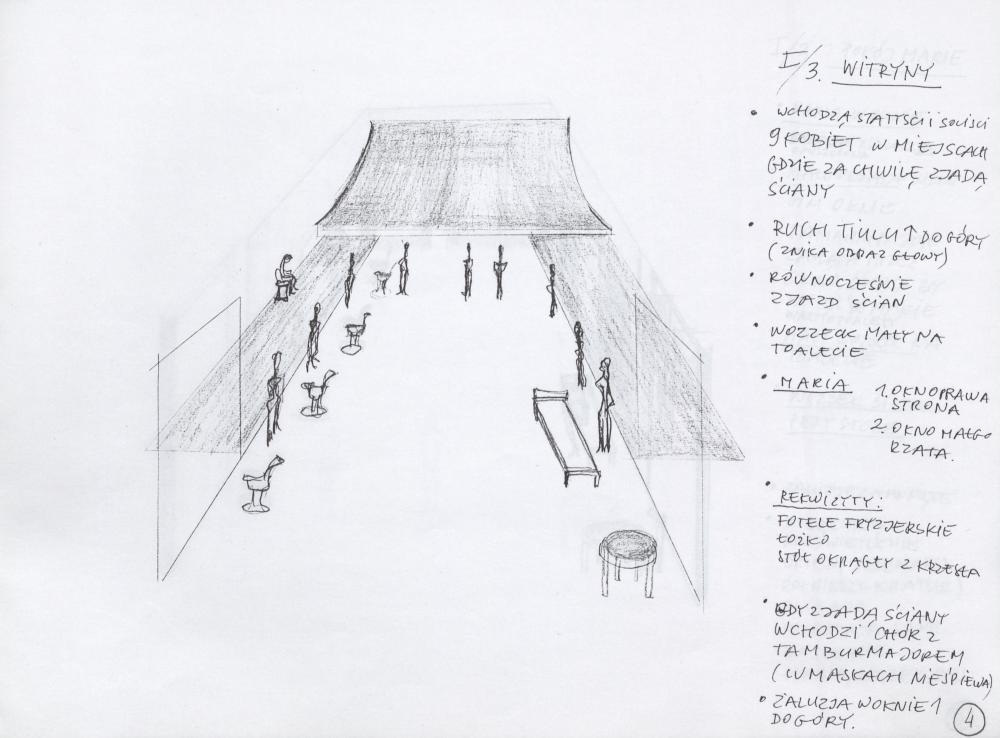 I/3. WITRYNY
• WCHODZĄ STATYŚCI I SOLIŚCI
9 KOBIET W MIEJSCACH
GDZIE ZA CHWILĘ ZJADĄ
ŚCIANY
• RUCH TIULU ↑ DO GÓRY
(ZNIKA OBRAZ GŁOWY)
• RÓWNOCZEŚNIE
ZJAZD ŚCIAN
• WOZZECK MAŁY NA
TOALECIE
• MARIA 1. OKNO PRAWA
STRONA
2. OKNO MAŁGO
RZATA.
• REKWIZYTY:
FOTELE FRYZJERSKIE
ŁÓŻKO
STÓŁ OKRĄGŁY 2 KRZESŁA
• GDY ZJADĄ ŚCIANY
WCHODZI CHÓR Z
TAMBURMAJOREM
(W MASKACH NIE ŚPIEWA)
• ŻALUZJA W OKNIE 1
DO GÓRY.
4